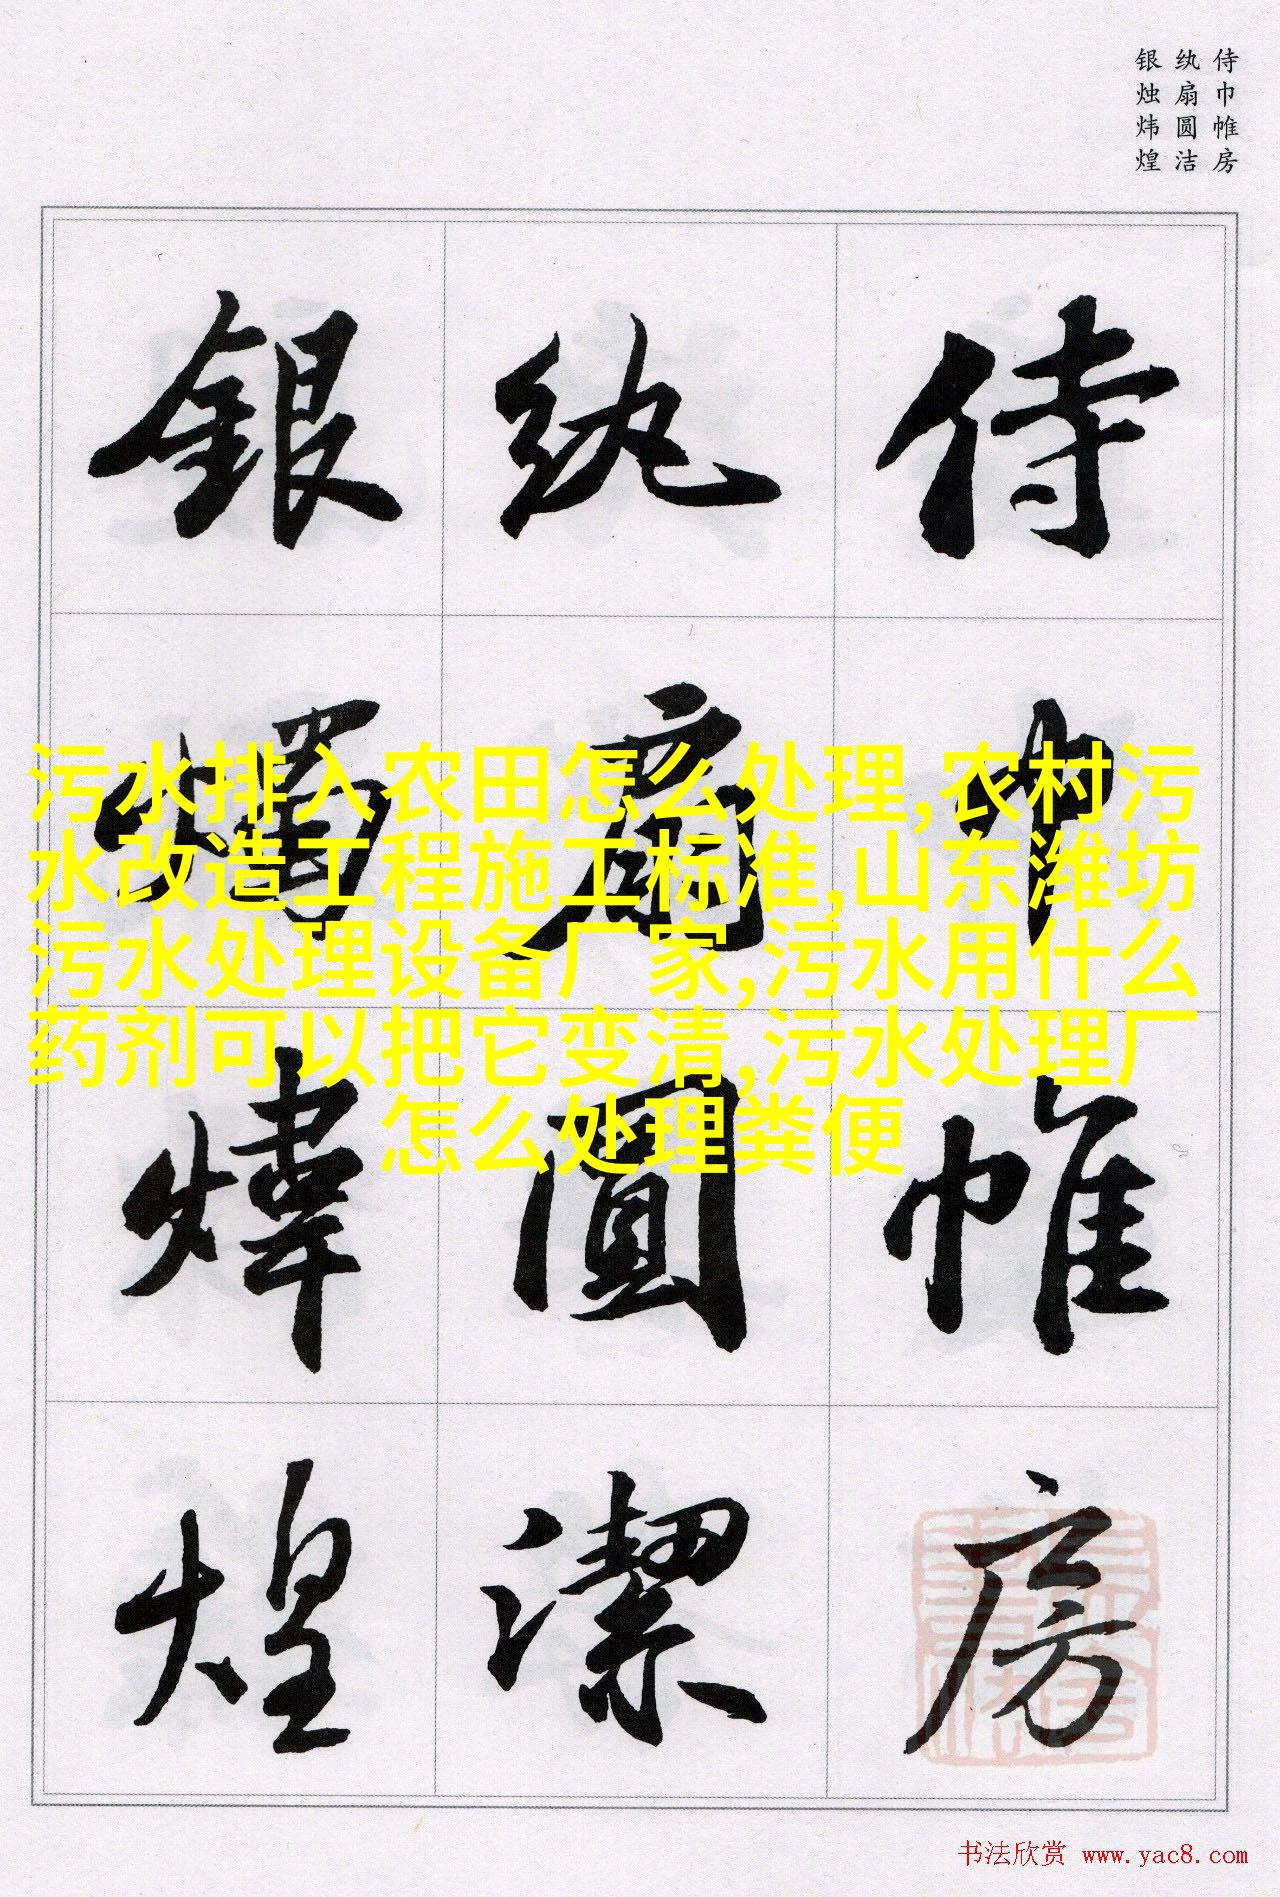 侍巾帷房
纨扇圆洁
银烛炜煌
侍巾帷房
纨扇圓潔
銀燭煒煌
污水排入农田怎么处理,农村污
水改造工程施工标准,山东潍坊
污水处理设备厂家,污水用什么
药剂可以把它变清,污水处理厂
怎么处理粪便
书法欣赏 www.yac8.com